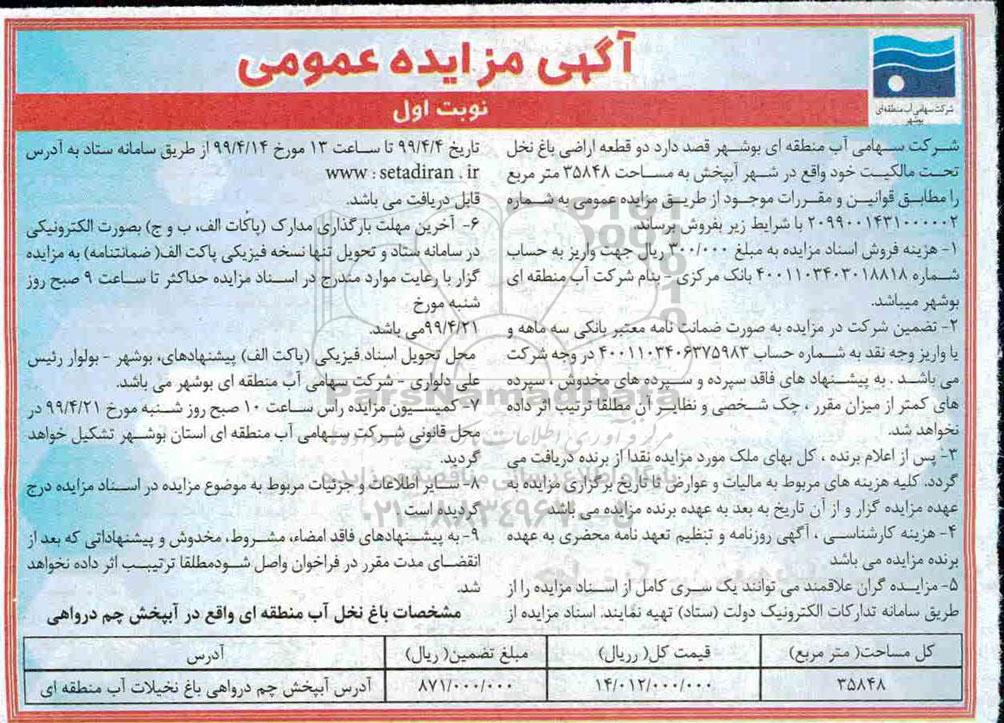 آگهی مزایده عمومی
نوبت اول
شرکت سهامی آب منطقه‌ای
بوشهر
شرکت سهامی آب منطقه ای بوشهر قصد دارد دو قطعه اراضی باغ نخل
تحت مالکیت خود واقع در شهر آبپخش به مساحت ۳۵۸۴۸ متر مربع
را مطابق قوانین و مقررات موجود از طریق مزایده عمومی به شماره
۲۰۹۹۰۰۱۴۳۱۰۰۰۰۰۲ با شرایط زیر بفروش برساند.
۱- هزینه فروش اسناد مزایده به مبلغ ۳۰۰/۰۰۰ ریال جهت واریز به حساب
شماره ۴۰۰۱۱۰۳۴۰۳۰۱۸۸۱۸ بانک مرکزی - بنام شرکت آب منطقه ای
بوشهر میباشد.
۲- تضمین شرکت در مزایده به صورت ضمانت نامه معتبر بانکی سه ماهه و
یا واریز وجه نقد به شماره حساب ۴۰۰۱۱۰۳۴۰۶۳۷۵۹۸۳ در وجه شرکت
می باشد . به پیشنهاد های فاقد سپرده و سپرده های مخدوش ، سپرده
های کمتر از میزان مقرر ، چک شخصی و نظایر آن مطلقا ترتیب اثر داده
نخواهد شد.
۳- پس از اعلام برنده ، کل بهای ملک مورد مزایده نقدا از برنده دریافت می
گردد. کلیه هزینه های مربوط به مالیات و عوارض تا تاریخ برگزاری مزایده به
عهده مزایده گزار و از آن تاریخ به بعد به عهده برنده مزایده می باشد
۴- هزینه کارشناسی ، آگهی روزنامه و تنظیم تعهد نامه محضری به عهده
برنده مزایده می باشد
۵- مزایده گران علاقمند می توانند یک سری کامل از اسناد مزایده را از
طریق سامانه تدارکات الکترونیک دولت (ستاد) تهیه نمایند. اسناد مزایده از
تاریخ ۹۹/۴/۴ تا ساعت ۱۳ مورخ ۹۹/۴/۱۴ از طریق سامانه ستاد به آدرس
www : setadiran . ir
قابل دریافت می باشد.
۶- آخرین مهلت بارگذاری مدارک (پاکات الف، ب و ج) بصورت الکترونیکی
در سامانه ستاد و تحویل تنها نسخه فیزیکی پاکت الف( ضمانتنامه) به مزایده
گزار با رعایت موارد مندرج در اسناد مزایده حداکثر تا ساعت ۹ صبح روز
شنبه مورخ
۹۹/۴/۲۱می باشد.
محل تحویل اسناد فیزیکی (پاکت الف) پیشنهادهای، بوشهر - بولوار رئیس
علی دلواری - شرکت سهامی آب منطقه ای بوشهر می باشد.
۷- کمیسیون مزایده راس ساعت ۱۰ صبح روز شنبه مورخ ۹۹/۴/۲۱ در
محل قانونی شرکت سهامی آب منطقه ای استان بوشهر تشکیل خواهد
گردید.
۸- سایر اطلاعات و جزئیات مربوط به موضوع مزایده در اسناد مزایده درج
گردیده است .
۹- به پیشنهادهای فاقد امضاء، مشروط، مخدوش و پیشنهاداتی که بعد از
انقضای مدت مقرر در فراخوان واصل شودمطلقا ترتیب اثر داده نخواهد
شد.
مشخصات باغ نخل آب منطقه ای واقع در آبپخش چم درواهی
کل مساحت( متر مربع) قیمت کل( رریال) مبلغ تضمین( ریال) آدرس
۳۵۸۴۸ ۱۴/۰۱۲/۰۰۰/۰۰۰ ۸۷۱/۰۰۰/۰۰۰ آدرس آبپخش چم درواهی باغ نخیلات آب منطقه ای
ParsNamadData
۰۲۱-۸۸۳۴۹۶۷۰